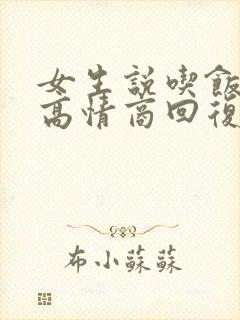 女生説喫飯
高情商回復
布小蘇蘇